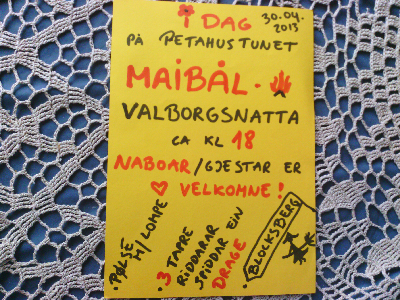 I DAG 30.04.2013
PÅ PETAHUSTUNET
MAIBÅL.
VALBORGSNATTA
CA KL 18
NABOAR/GJESTAR ER
VELKOMNE!
.PØLSE
M/LOMPE
.3 TAPRE
RIDDARAR
SPIDDAR EIN
DRAGE.
.BLOCKSBERG